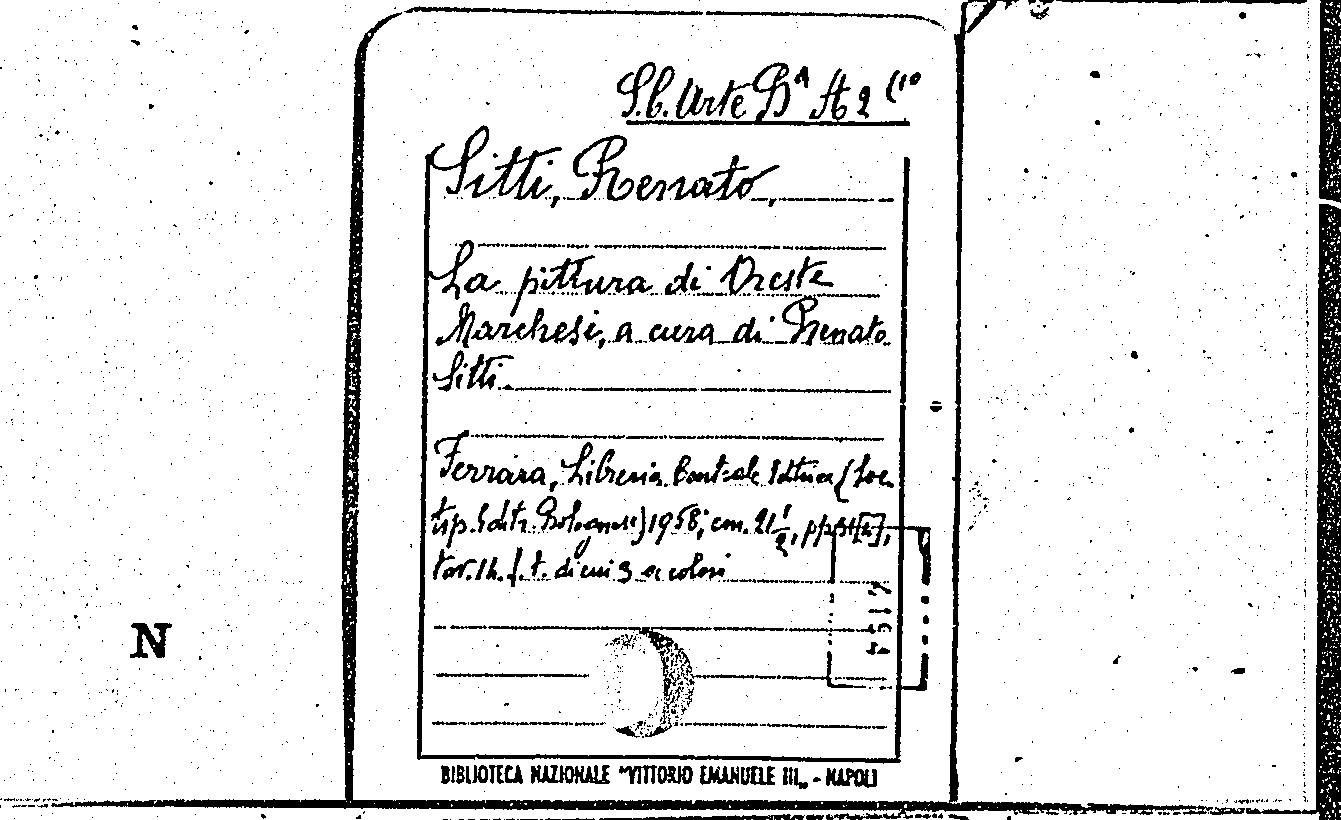 S.C. Arte B^A A 2 (10
Sitti, Renato,
La pittura di Oreste
Marchesi, a cura di Renato
Sitti.
Ferrara, Libreria Centrale Editrice (Soc.
tip. Editr. Bolognese) 1958; cm. 21 1/2, pp.
tav. 14 f. t. di cui 3 a colori
N
BIBLIOTECA NAZIONALE "VITTORIO EMANUELE III„ - NAPOLI